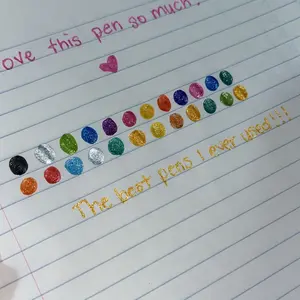 ove this pen so much!
The best pens I ever used!!!